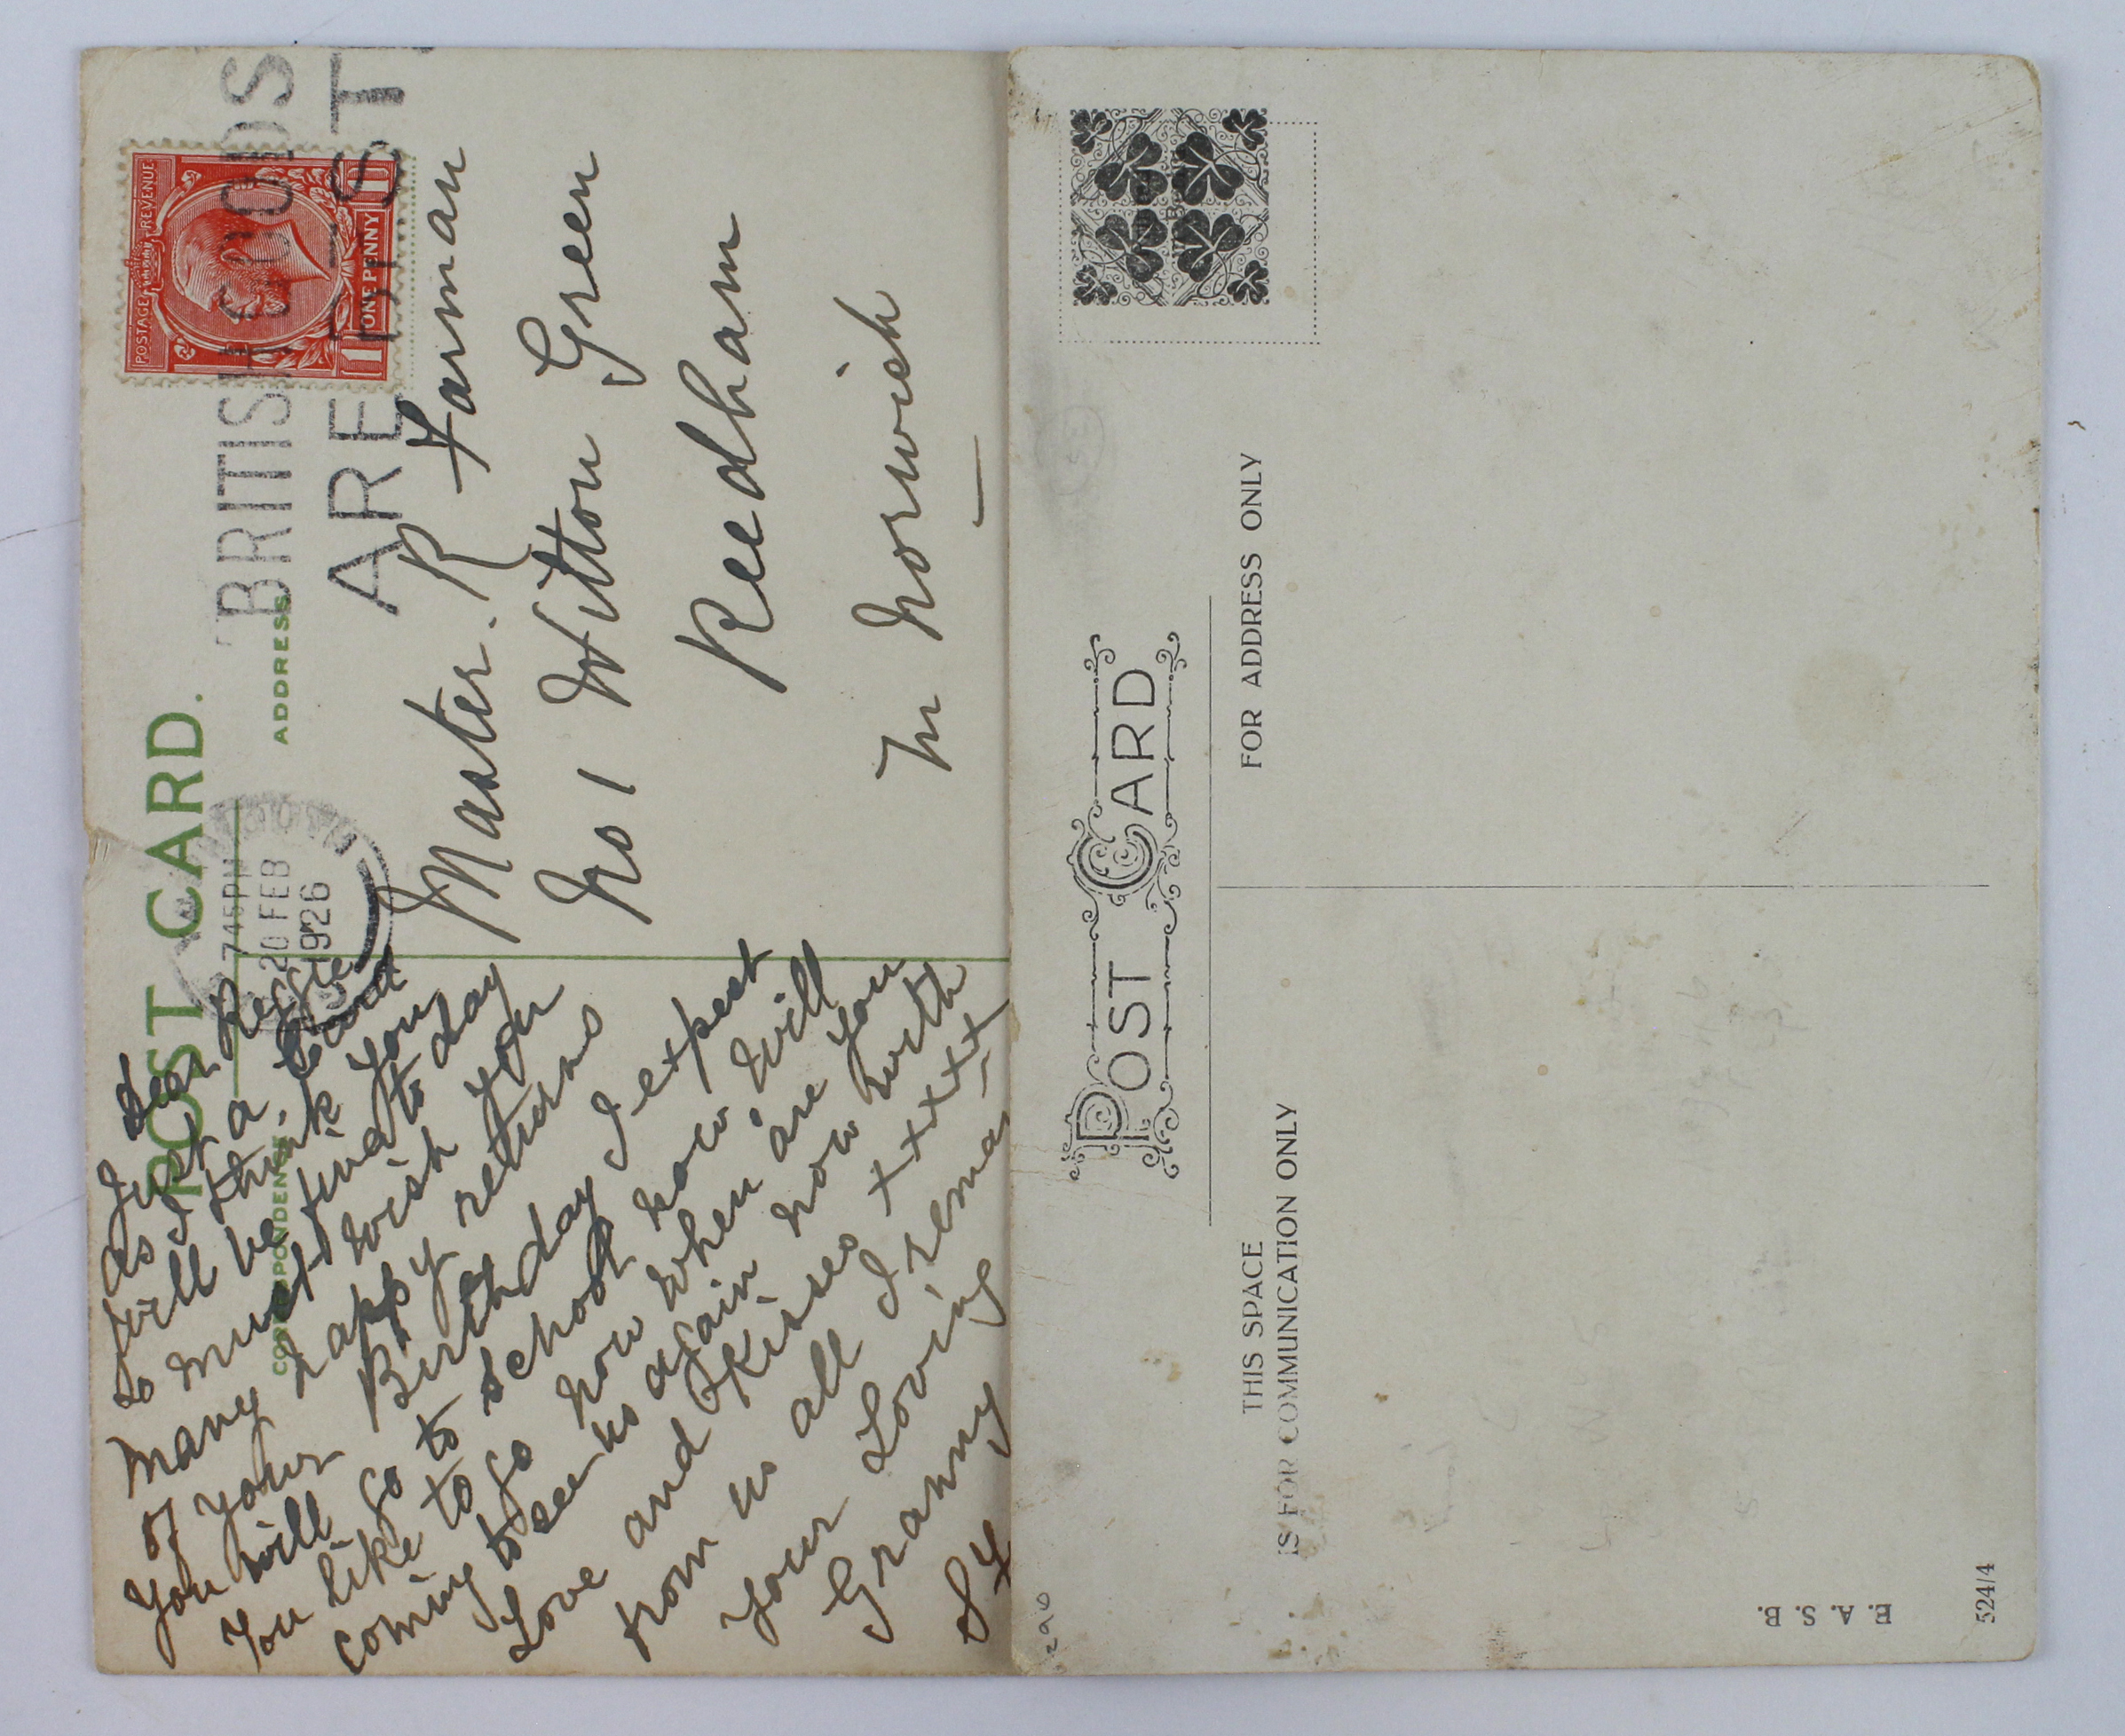 POST CARD.
CORRESPONDENCE
ADDRESS
7 45 PM
20 FEB
1926
BRITISH GOODS
ARE BEST
POSTAGE REVENUE
1 ONE PENNY 1
Dear Reggie
Just a Card
as I think you
will be
to must find to day
Many happy returns
of your Birthday I expect
You will go to school now will
You like to go now when are you
coming to see us again now with
Love and kisses xxxxxx
from us all I remain
Your Loving
Granny
Master. R Farman
No 1 Witton Green
Reedham
Nr Norwich
POST CARD
THIS SPACE
IS FOR COMMUNICATION ONLY
FOR ADDRESS ONLY
E. A. S. B.
524/4